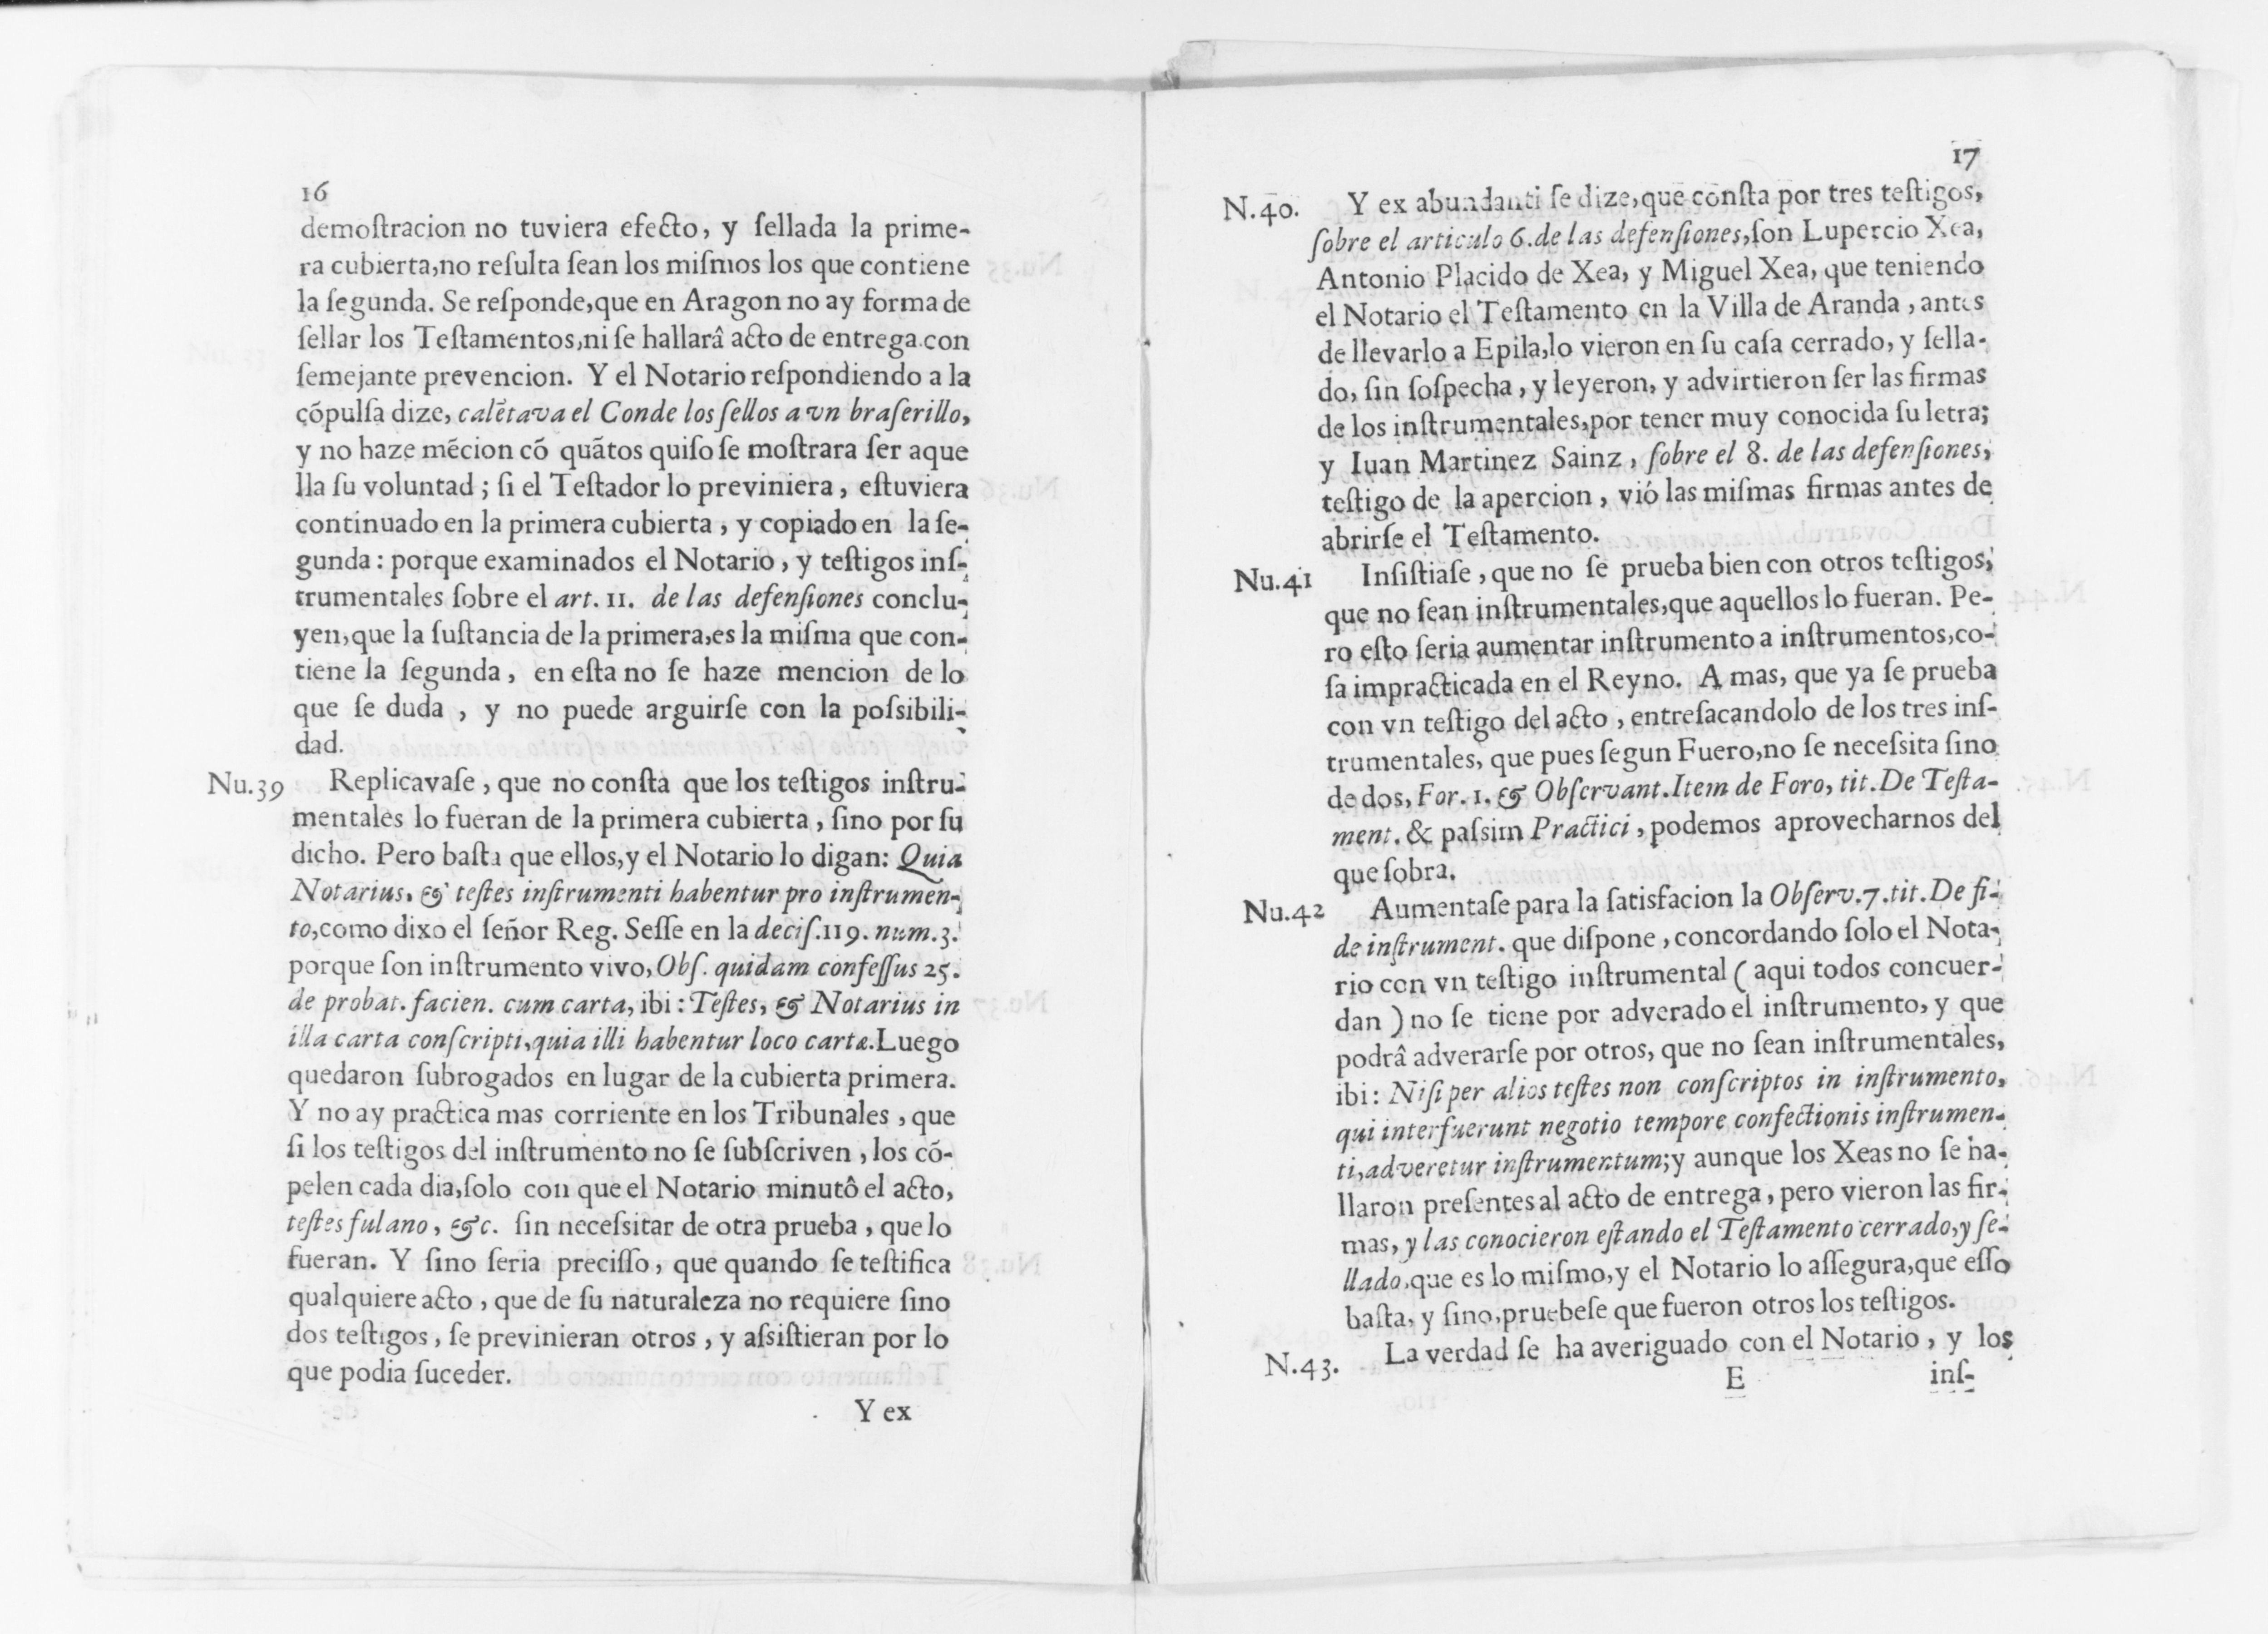 16
demoſtracion no tuviera efecto, y ſellada la prime-
ra cubierta,no reſulta ſean los miſmos los que contiene
la ſegunda. Se reſponde,que en Aragon no ay forma de
ſellar los Teſtamentos,ni ſe hallarâ acto de entrega con
ſemejante prevencion. Y el Notario reſpondiendo a la
cópulſa dize, calẽtava el Conde los ſellos a vn braſerillo,
y no haze mẽcion có quãtos quiſo ſe moſtrara ſer aque
lla ſu voluntad ; ſi el Teſtador lo previniera , eſtuviera
continuado en la primera cubierta , y copiado en la ſe-
gunda : porque examinados el Notario , y teſtigos inſ-
trumentales ſobre el art. 11. de las defenſiones conclu-
yen,que la ſuſtancia de la primera,es la miſma que con-
tiene la ſegunda , en eſta no ſe haze mencion de lo
que ſe duda , y no puede arguirſe con la poſsibili-
dad.
Nu.39 Replicavaſe , que no conſta que los teſtigos inſtru-
mentales lo fueran de la primera cubierta , ſino por ſu
dicho. Pero baſta que ellos,y el Notario lo digan: Quia
Notarius, & teſtes inſtrumenti habentur pro inſtrumen-
to,como dixo el ſeñor Reg. Seſſe en la deciſ.119. num.3.
porque ſon inſtrumento vivo, Obſ. quidam confeſſus 25.
de probat. facien. cum carta, ibi : Teſtes, & Notarius in
illa carta conſcripti,quia illi habentur loco cartæ.Luego
quedaron ſubrogados en lugar de la cubierta primera.
Y no ay practica mas corriente en los Tribunales , que
ſi los teſtigos del inſtrumento no ſe ſubſcriven , los có-
pelen cada dia,ſolo con que el Notario minutô el acto,
teſtes fulano , &c. ſin neceſsitar de otra prueba , que lo
fueran. Y ſino ſeria preciſſo, que quando ſe teſtifica
qualquiere acto , que de ſu naturaleza no requiere ſino
dos teſtigos , ſe previnieran otros , y aſsiſtieran por lo
que podia ſuceder.
Y ex
17
N.40. Y ex abundanti ſe dize,que conſta por tres teſtigos,
ſobre el articulo 6.de las defenſiones,ſon Lupercio Xea,
Antonio Placido de Xea, y Miguel Xea, que teniendo
el Notario el Teſtamento en la Villa de Aranda , antes
de llevarlo a Epila,lo vieron en ſu caſa cerrado, y ſella-
do, ſin ſoſpecha , y leyeron, y advirtieron ſer las firmas
de los inſtrumentales,por tener muy conocida ſu letra;
y Iuan Martinez Sainz , ſobre el 8. de las defenſiones,
teſtigo de la apercion , vió las miſmas firmas antes de
abrirſe el Teſtamento.
Nu.41 Inſiſtiaſe , que no ſe prueba bien con otros teſtigos,
que no ſean inſtrumentales,que aquellos lo fueran. Pe-
ro eſto ſeria aumentar inſtrumento a inſtrumentos,co-
ſa impracticada en el Reyno. A mas, que ya ſe prueba
con vn teſtigo del acto , entreſacandolo de los tres inſ-
trumentales, que pues ſegun Fuero,no ſe neceſsita ſino
de dos, For. 1. & Obſervant.Item de Foro, tit. De Teſta-
ment. & paſsim Practici , podemos aprovecharnos del
que ſobra.
Nu.42 Aumentaſe para la ſatisfacion la Obſerv.7.tit. De fi-
de inſtrument. que diſpone , concordando ſolo el Nota-
rio con vn teſtigo inſtrumental ( aqui todos concuer-
dan ) no ſe tiene por adverado el inſtrumento, y que
podrâ adverarſe por otros, que no ſean inſtrumentales,
ibi : Niſi per alios teſtes non conſcriptos in inſtrumento,
qui interfuerunt negotio tempore confectionis inſtrumen-
ti,adveretur inſtrumentum;y aunque los Xeas no ſe ha-
llaron preſentes al acto de entrega , pero vieron las fir-
mas, y las conocieron eſtando el Teſtamento cerrado,y ſe-
llado,que es lo miſmo,y el Notario lo aſſegura,que eſſo
baſta, y ſino,pruebeſe que fueron otros los teſtigos.
N.43. La verdad ſe ha averiguado con el Notario , y los
E inſ-